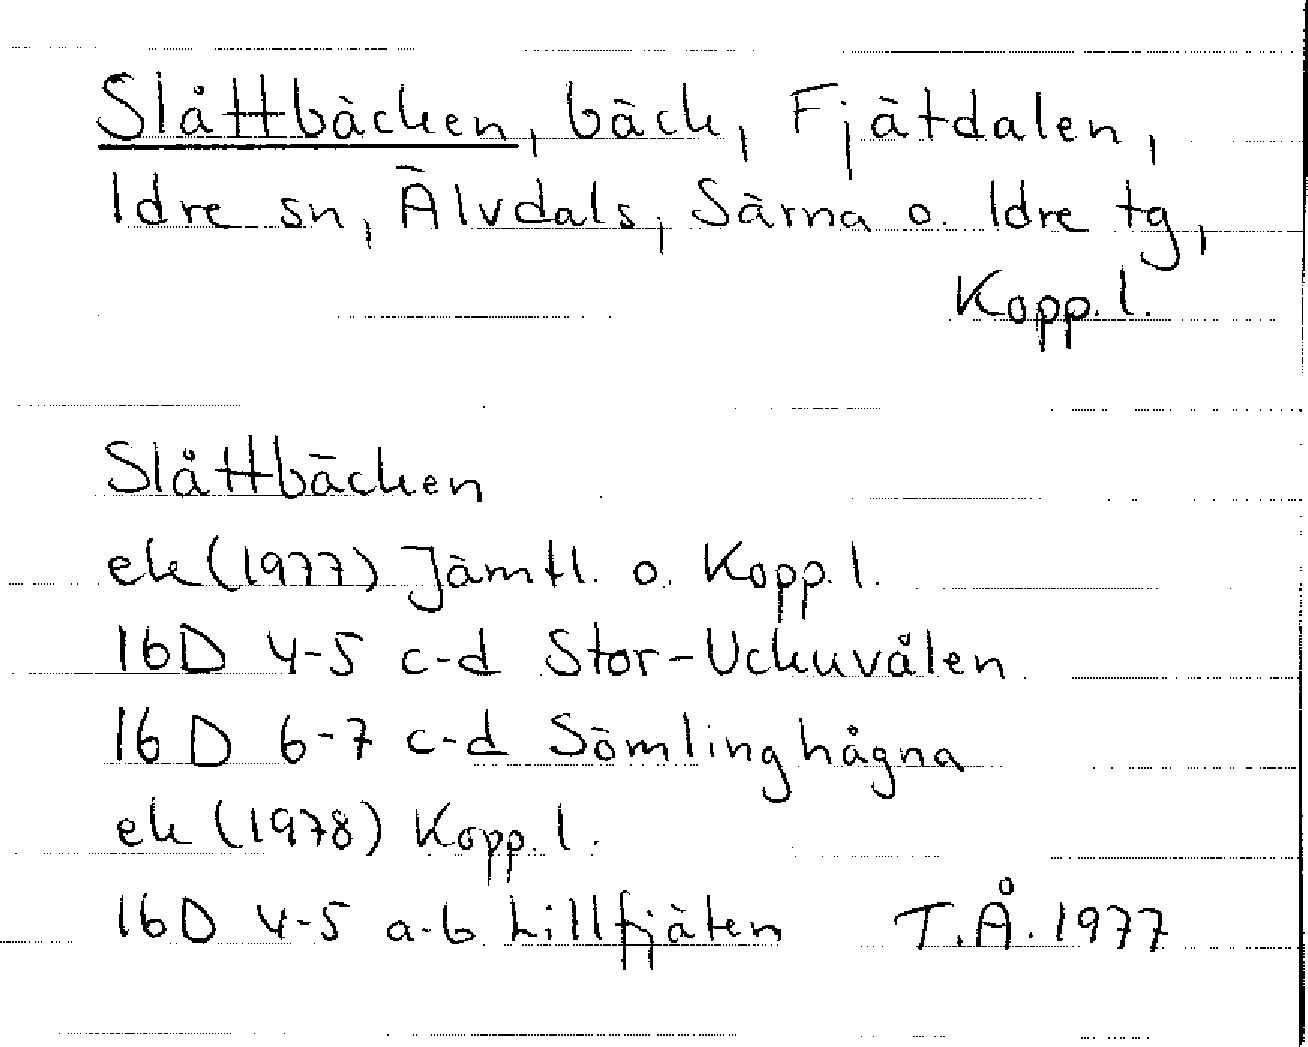 Slåttbäcken, bäck, Fjätdalen,
Idre sn, Älvdals, Särna o. Idre tg,
Kopp. l.
Slåttbäcken
ek (1977) Jämtl. o. Kopp. l.
16D 4-5 c-d Stor-Uckuvålen
16D 6-7 c-d Sömlinghågna
ek (1978) Kopp. l.
16D 4-5 a-b Lillfjäten T.Å. 1977